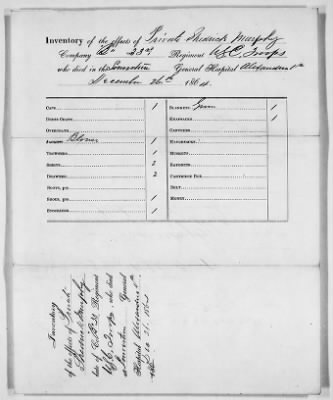 Inventory of the effects of Private Frederick Murphy
Company "B" 23rd Regiment U.S.C. Troops
who died in the L'Ouverture General Hospital Alexandria Va
December 26th 1864.
CAPS, 1
DRESS-COATS,
OVERCOATS,
JACKETS, Blouse 1
TROWSERS, 1
SHIRTS, 2
DRAWERS, 2
SHOES, prs.
SOCKS, prs. 1
STOCKINGS, 1
BLANKETS, Gum 1
KNAPSACKS, 1
CANTEENS,
HAVERSACKS,
MUSKETS,
BAYONETS,
CARTRIDGE BOX,
BELT,
MONEY,
Inventory
of the effects of Private
Frederick Murphy
late of Co. "B" 23 Regiment
U.S.C. Troops, who died
at L'Ouverture General
Hospital Alexandria Va
Dec 26. 1864